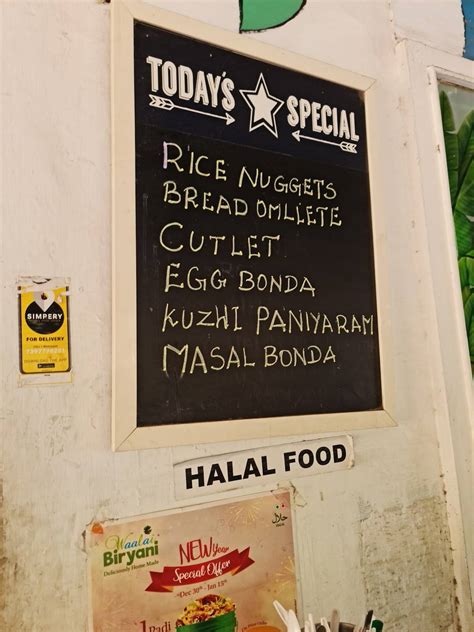 TODAY'S SPECIAL
RICE NUGGETS
BREAD OMLLETE
CUTLET
EGG BONDA
KUZHI PANIYARAM
MASAL BONDA
SIMPERY
FOR DELIVERY
HALAL FOOD
Waalai
Biryani
Deliciously Home Made
NEW Year
Special Offer
Dec 30th - Jan 15th
حلال